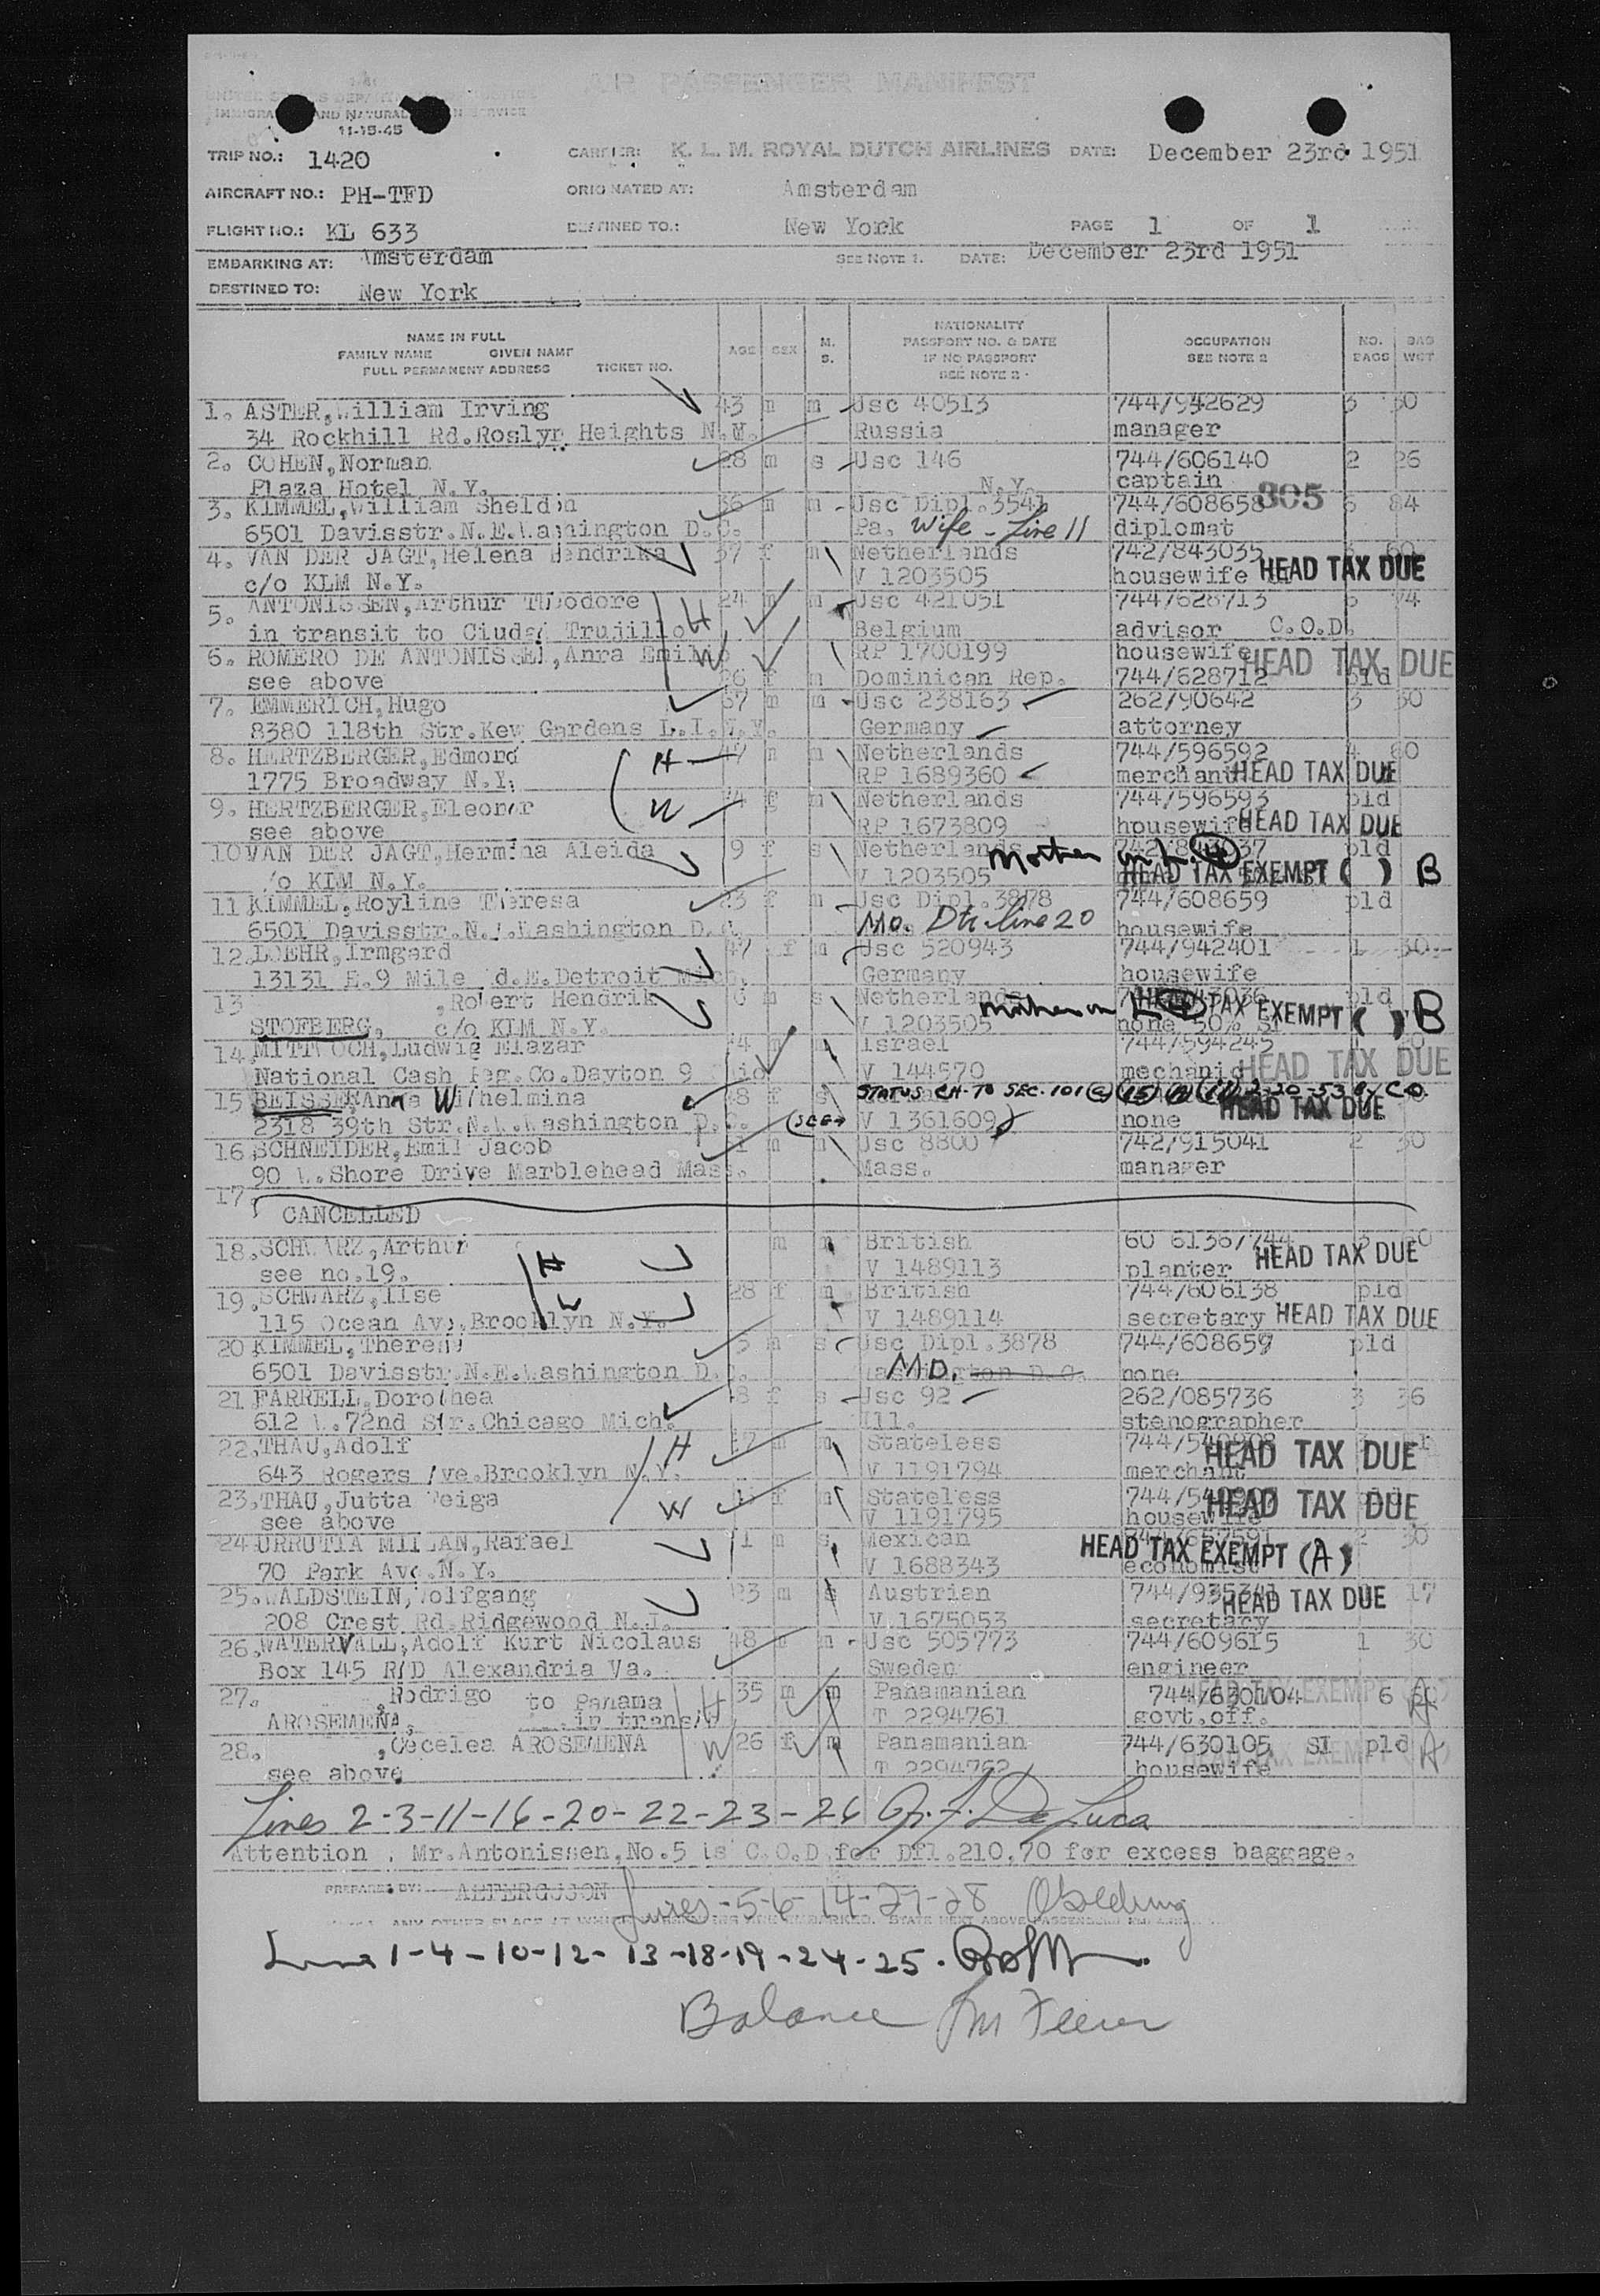 AIR PASSENGER MANIFEST
IMMIGRATION AND NATURALIZATION SERVICE
11-15-45
TRIP NO.: 1420 CARRIER: K. L. M. ROYAL DUTCH AIRLINES DATE: December 23rd 1951
AIRCRAFT NO.: PH-TFD ORIGINATED AT: Amsterdam
FLIGHT NO.: KL 633 DESTINED TO.: New York PAGE 1 OF 1
EMBARKING AT: Amsterdam SEE NOTE 1. DATE: December 23rd 1951
DESTINED TO: New York
NAME IN FULL
FAMILY NAME GIVEN NAME
FULL PERMANENT ADDRESS TICKET NO.
AGE SEX M. S.
NATIONALITY
PASSPORT NO. & DATE
IF NO PASSPORT
SEE NOTE 2
OCCUPATION
SEE NOTE 2
NO. BAGS
BAG WGT
1. ASTER, William Irving 43 m m Usc 40513 744/942629 3 30
34 Rockhill Rd. Roslyn Heights N.Y. Russia manager
2. COHEN, Norman 28 m s Usc 146 744/606140 2 26
Plaza Hotel N.Y. N.Y. captain
3. KIMMEL, William Sheldon 36 m m Usc Dipl. 3541 744/608658 305 84
6501 Davisstr. N.E. Washington D.C. Pa. Wife - Line 11 diplomat
4. VAN DER JAGT, Helena Hendrika 37 f m Netherlands 742/843035
c/o KLM N.Y. V 1203505 housewife HEAD TAX DUE
5. ANTONISSEN, Arthur Theodore H 24 m m Usc 421051 744/628713 74
in transit to Ciudad Trujillo Belgium advisor C.O.D.
6. ROMERO DE ANTONISSEN, Anra Emilio W RP 1700199 housewife HEAD TAX DUE
see above 26 f m Dominican Rep. 744/628712 pld
7. EMMERICH, Hugo 67 m m Usc 238163 262/90642 3 30
8380 118th Str. Kew Gardens L.I. N.Y. Germany attorney
8. HERTZBERGER, Edmond H 47 m m Netherlands 744/596592 4 60
1775 Broadway N.Y. RP 1689360 merchant HEAD TAX DUE
9. HERTZBERGER, Eleonor W f m Netherlands 744/596593 pld
see above RP 1673809 housewife HEAD TAX DUE
10 VAN DER JAGT, Hermina Aleida 9 f s Netherlands Mother on L. 4 pld
c/o KLM N.Y. V 1203505 HEAD TAX EXEMPT ( ) B
11 KIMMEL, Royline Theresa f m Usc Dipl. 3878 744/608659 pld
6501 Davisstr. N.E. Washington D.C. Mo. Dtr line 20 housewife
12. LOEHR, Irmgard 47 f m Usc 520943 744/942401 1 30
13131 E. 9 Mile Rd. E. Detroit Mich. Germany housewife
13 , Robert Hendrik 6 m s Netherlands Mother on L 4 pld
STOFBERG, c/o KLM N.Y. V 1203505 none 50% HEAD TAX EXEMPT ( ) B
14. MITTWOCH, Ludwig Elazar m m Israel 744/594245
National Cash Reg. Co. Dayton 9 Ohio V 144570 mechanic HEAD TAX DUE
15 BEISSE, Anna Wilhelmina 48 f s STATUS CH. TO SEC. 101 (a) (15) 2-20-53 By C.O.
2318 39th Str. N.W. Washington D.C. V 1361609 none HEAD TAX DUE
16 SCHNEIDER, Emil Jacob m m Usc 8800 742/915041 2 30
90 W. Shore Drive Marblehead Mass. Mass. manager
17.
CANCELLED
18. SCHWARZ, Arthur H m m British 60 6136/744
see no. 19. V 1489113 planter HEAD TAX DUE
19. SCHWARZ, Ilse W 28 f m British 744/606138 pld
115 Ocean Av., Brooklyn N.Y. V 1489114 secretary HEAD TAX DUE
20 KIMMEL, Theresa 3 m s Usc Dipl. 3878 744/608659 pld
6501 Davisstr. N.E. Washington D.C. MD. Washington D.C. none
21 FARRELL, Dorothea f s Usc 92 262/085736 3 36
612 W. 72nd Str. Chicago Mich. Ill. stenographer
22. THAU, Adolf H m m Stateless HEAD TAX DUE
643 Rogers Ave. Brooklyn N.Y. V 1191794 merchant
23. THAU, Jutta Feiga W f m Stateless HEAD TAX DUE
see above V 1191795 housewife
24 URRUTIA MILLAN, Rafael m s Mexican 30
70 Park Ave. N.Y. V 1688343 economist HEAD TAX EXEMPT (A)
25. WALDSTEIN, Wolfgang 23 m s Austrian 744/935341 HEAD TAX DUE 17
208 Crest Rd. Ridgewood N.J. V 1675053 secretary
26. WATERVALL, Adolf Kurt Nicolaus 48 m m Usc 505773 744/609615 1 30
Box 145 RFD Alexandria Va. Sweden engineer
27. , Rodrigo to Panama H 35 m m Panamanian 744/630104 6
AROSEMENA, in transit T 2294761 govt. off. HEAD TAX EXEMPT (A)
28. , Cecelea AROSEMENA W 26 f m Panamanian 744/630105 SI pld
see above T 2294762 housewife HEAD TAX EXEMPT A
Lines 2-3-11-16-20-22-23-26 G. F. De Luca
Attention . Mr. Antonissen, No. 5 is C.O.D. for Dfl. 210,70 for excess baggage.
PREPARED BY:
Lines - 5-6-14-27-28
Line 1-4-10-12-13-18-19-24-25.
Balance